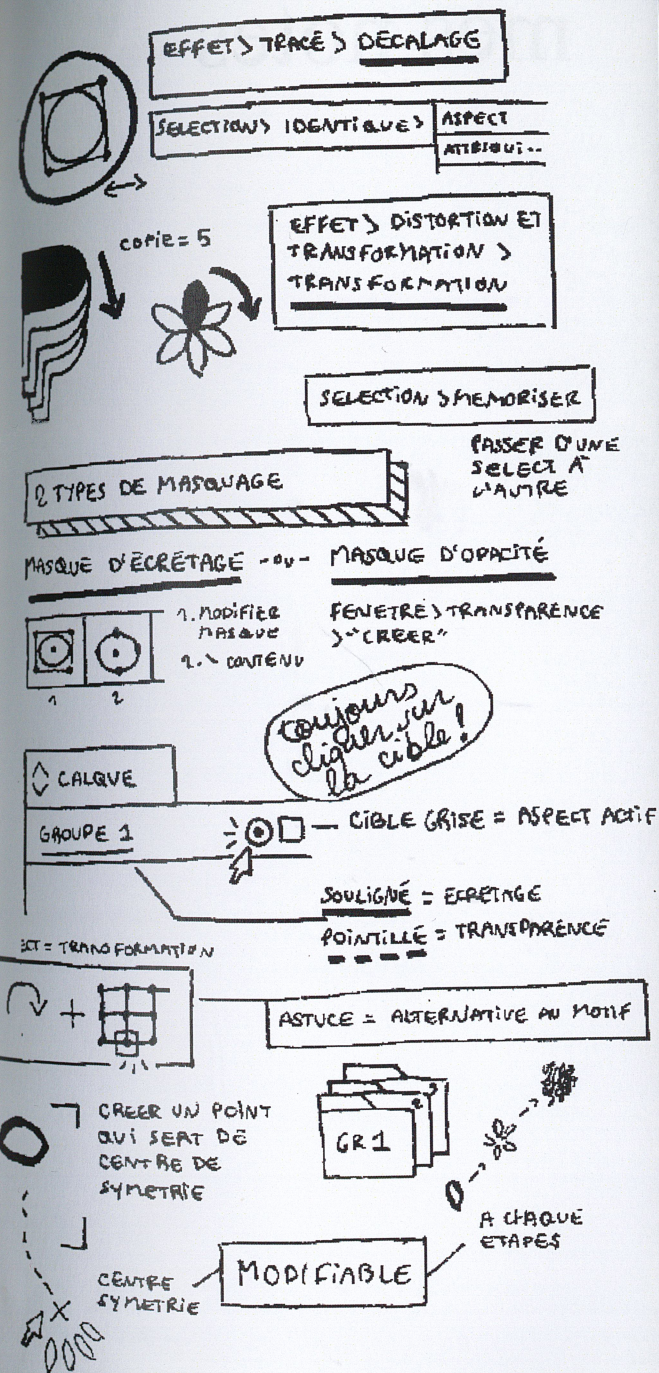 EFFET > TRACÉ > DÉCALAGE
SELECTION > IDENTIQUE >
ASPECT
ATTRIBUT..
COPIE = 5
EFFET > DISTORTION ET
TRANSFORMATION >
TRANSFORMATION
SELECTION > MEMORISER
PASSER D'UNE
SELECT À
L'AUTRE
2 TYPES DE MASQUAGE
MASQUE D'ÉCRÊTAGE -OU- MASQUE D'OPACITÉ
1. MODIFIER
MASQUE
2. \ CONTENU
1 2
FENETRE > TRANSPARENCE
> "CREER"
toujours
cliquer sur
la cible !
CALQUE
GROUPE 1
CIBLE GRISE = ASPECT ACTIF
SOULIGNÉ = ECRETAGE
POINTILLÉ = TRANSPARENCE
ECT = TRANSFORMATION
+
ASTUCE = ALTERNATIVE AU MOTIF
CREER UN POINT
QUI SERT DE
CENTRE DE
SYMETRIE
GR 1
2
3
A CHAQUE
ETAPES
CENTRE
SYMETRIE
MODIFIABLE